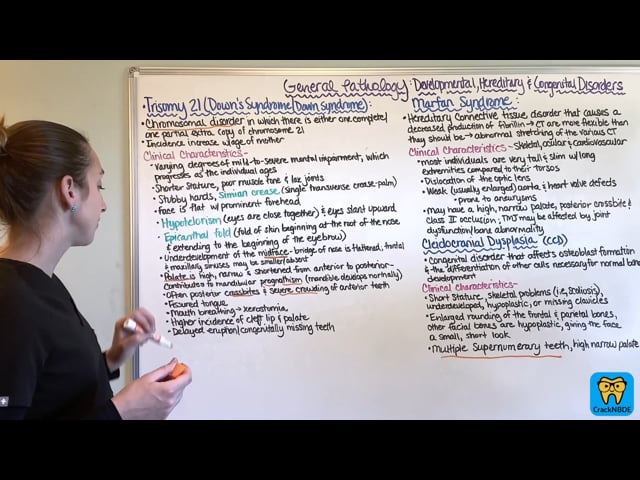 General Pathology: Developmental, Hereditary & Congenital Disorders
• Trisomy 21 (Down's Syndrome/Down syndrome):
• Chromosomal disorder in which there is either one complete/
one partial extra copy of chromosome 21
• Incidence increase w/age of mother
Clinical Characteristics-
• Varying degrees of mild-to-severe mental impairment, which
progresses as the individual ages
• Shorter stature, poor muscle tone & lax joints
• Stubby hands, Simian crease (single transverse crease-palm)
• Face is flat w/prominent forehead
• Hypotelorism (eyes are close together) & eyes slant upward
• Epicanthal fold (fold of skin beginning at the root of the nose
& extending to the beginning of the eyebrow)
• Underdevelopment of the midface - bridge of nose is flattened, frontal
& maxillary sinuses may be smaller/absent
• Palate is high, narrow & shortened from anterior to posterior-
contributes to mandibular prognathism (mandible develops normally)
• Often posterior crossbites & severe crowding of anterior teeth
• Fissured tongue
• Mouth breathing → xerostomia,
• Higher incidence of cleft lip & palate
• Delayed eruption/congenitally missing teeth
Marfan Syndrome:
• Hereditary connective tissue disorder that causes a
decreased production of fibrillin → CT are more flexible than
they should be → abnormal stretching of the various CT
Clinical Characteristics - Skeletal, ocular & cardiovascular
• most individuals are very tall & slim w/long
extremities compared to their torsos
• Dislocation of the optic lens
• Weak (usually enlarged) aorta & heart valve defects
• prone to aneurysms
• May have a high, narrow palate, posterior crossbite &
class II occlusion; TMJ may be affected by joint
dysfunction/bone abnormality
Cleidocranial Dysplasia (CCD)
• Congenital disorder that affects osteoblast formation
& the differentiation of other cells necessary for normal bone
development
Clinical Characteristics-
• Short stature, skeletal problems (i.e., scoliosis),
underdeveloped, hypoplastic, or missing clavicles
• Enlarged rounding of the frontal & parietal bones,
other facial bones are hypoplastic, giving the face
a small, short look
• Multiple Supernumerary teeth, high narrow palate
CrackNBDE